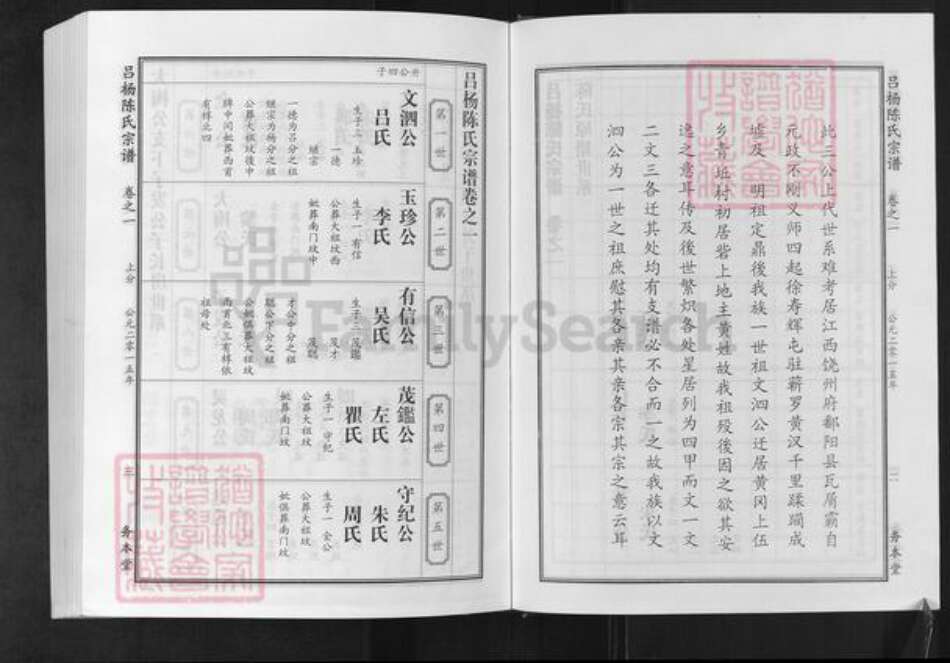 吕杨陈氏宗谱
卷之一
上分
公元二零一五年
二
务本堂
此三公上代世系难考居江西饶州府鄱阳县瓦屑霸自
元政不刚义师四起徐寿辉屯驻蕲罗黄汉千里蹂躏成
墟及 明祖定鼎後我族一世祖文泗公迁居黄冈上伍
乡青坵村初居砦上地主黄姓故我祖殁後因之欲其安
逸之意耳传及後世繁炽各处星居列为四甲而文一文
二文三各迁其处均有支谱必不合而一之故我族以文
泗公为一世之祖庶慰其各亲其亲各宗其宗之意云耳
吕杨陈氏宗谱卷之一
第一世
第二世
第三世
第四世
第五世
升公四子
文泗公
吕氏
生子三 玉珍
一德
继宗
一德为正分之祖
继宗为杨分之祖
公葬大祖坟後中
牌中间妣葬西首
有椁北四
玉珍公
李氏
生子一 有信
公葬大祖坟西
妣葬南门坟中
有信公
吴氏
生子三 茂鑑
茂才
茂聪
才公中分之祖
聪公下分之祖
公妣俱葬大祖坟
西首北三有椁依
祖母处
茂鑑公
左氏
瞿氏
生子一 守纪
公葬大祖坟
妣葬南门坟
守纪公
朱氏
周氏
生子一 金公
公葬大祖坟
妣俱葬南门坟
吕杨陈氏宗谱
卷之一
上分
公元二零一五年
三
务本堂
FamilySearch